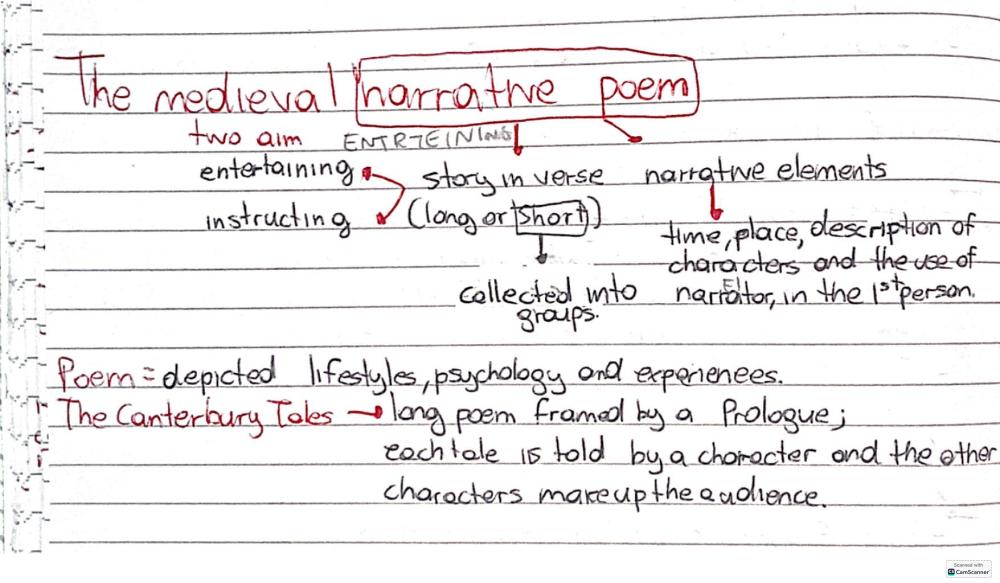 The medieval narrative poem
two aim ENTRTEINING
entertaining story in verse narrative elements
instructing (long or short)
time, place, description of
characters and the use of
collected into narrator, in the 1st person.
groups.
Poem = depicted lifestyles, psychology and experiences.
The Canterbury Tales → long poem framed by a Prologue;
each tale is told by a character and the other
characters make up the audience.
Scanned with
CamScanner